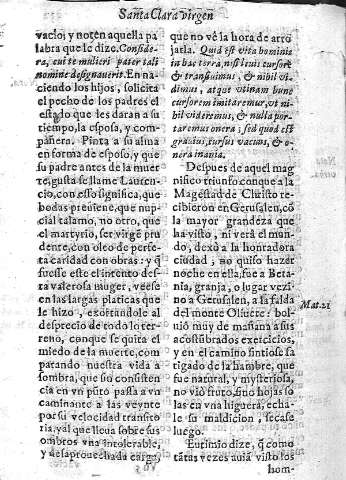 Santa Clara virgen
vacio; y noten aquella pa
labra que le dize. Conside-
ra, cui te mulieri pater tali
nomine designauerit. En na-
ciendo los hijos, solicita
el pecho de los padres el
estado que les daran a su
tiempo, la esposa, y com-
pañera. Pinta a su alma
en forma de esposo, y que
su padre antes de la muer
te, gusta se llame Lauren-
cio, con esso significa, que
bodas preuiene, que nup-
cial talamo, no otro, que
el martyrio, ser virgẽ pru
dente, con oleo de perfe-
ta caridad con obras: y q̃
fuesse este el intento des-
ta valerosa muger, veese
en las largas platicas que
le hizo, exortandole al
desprecio de todo lo ter-
reno, conque se quita el
miedo de la muerte, com
parando nuestra vida a
sombra, que su consisten
cia en vn pũto passa a vn
caminante a las veynte
por su velocidad transito
ria, y al que lleua sobre sus
ombros vna intolerable,
y desaprouechada carga,
que no vè la hora de arro
jarla. Quid est vita hominis
in hac terra, nisi leuis cursor?
& transiuimus, & nihil vi-
dimus, atque vtinam hunc
cursorem imitaremur, vt ni-
hil videremus, & nulla por-
taremus onera; sed quod est
grauius, cursus vacuus, & o-
nera inania.
Despues de aquel mag
nifico triunfo con que a la
Magestad de Christo re-
cibieron en Gerusalen, cõ
la mayor grandeza que
ha visto, ni verà el mun-
do, dexò a la honradora
ciudad; no quiso hazer
noche en ella, fue a Beta-
nia, granja, o lugar vezi-
no a Gerusalen, a la falda
del monte Oliuete: bol-
uiò muy de mañana a sus
acostũbrados exercicios,
y en el camino sintiose fa
tigado de la hambre, que
fue natural, y mysteriosa,
no viò fruto, sino hojas so
las en vna higuera, echa-
le su maldicion, secase
luego.
Eutimio dize, q̃ como
tãtas vezes auia visto los
hom-
Mat. 21